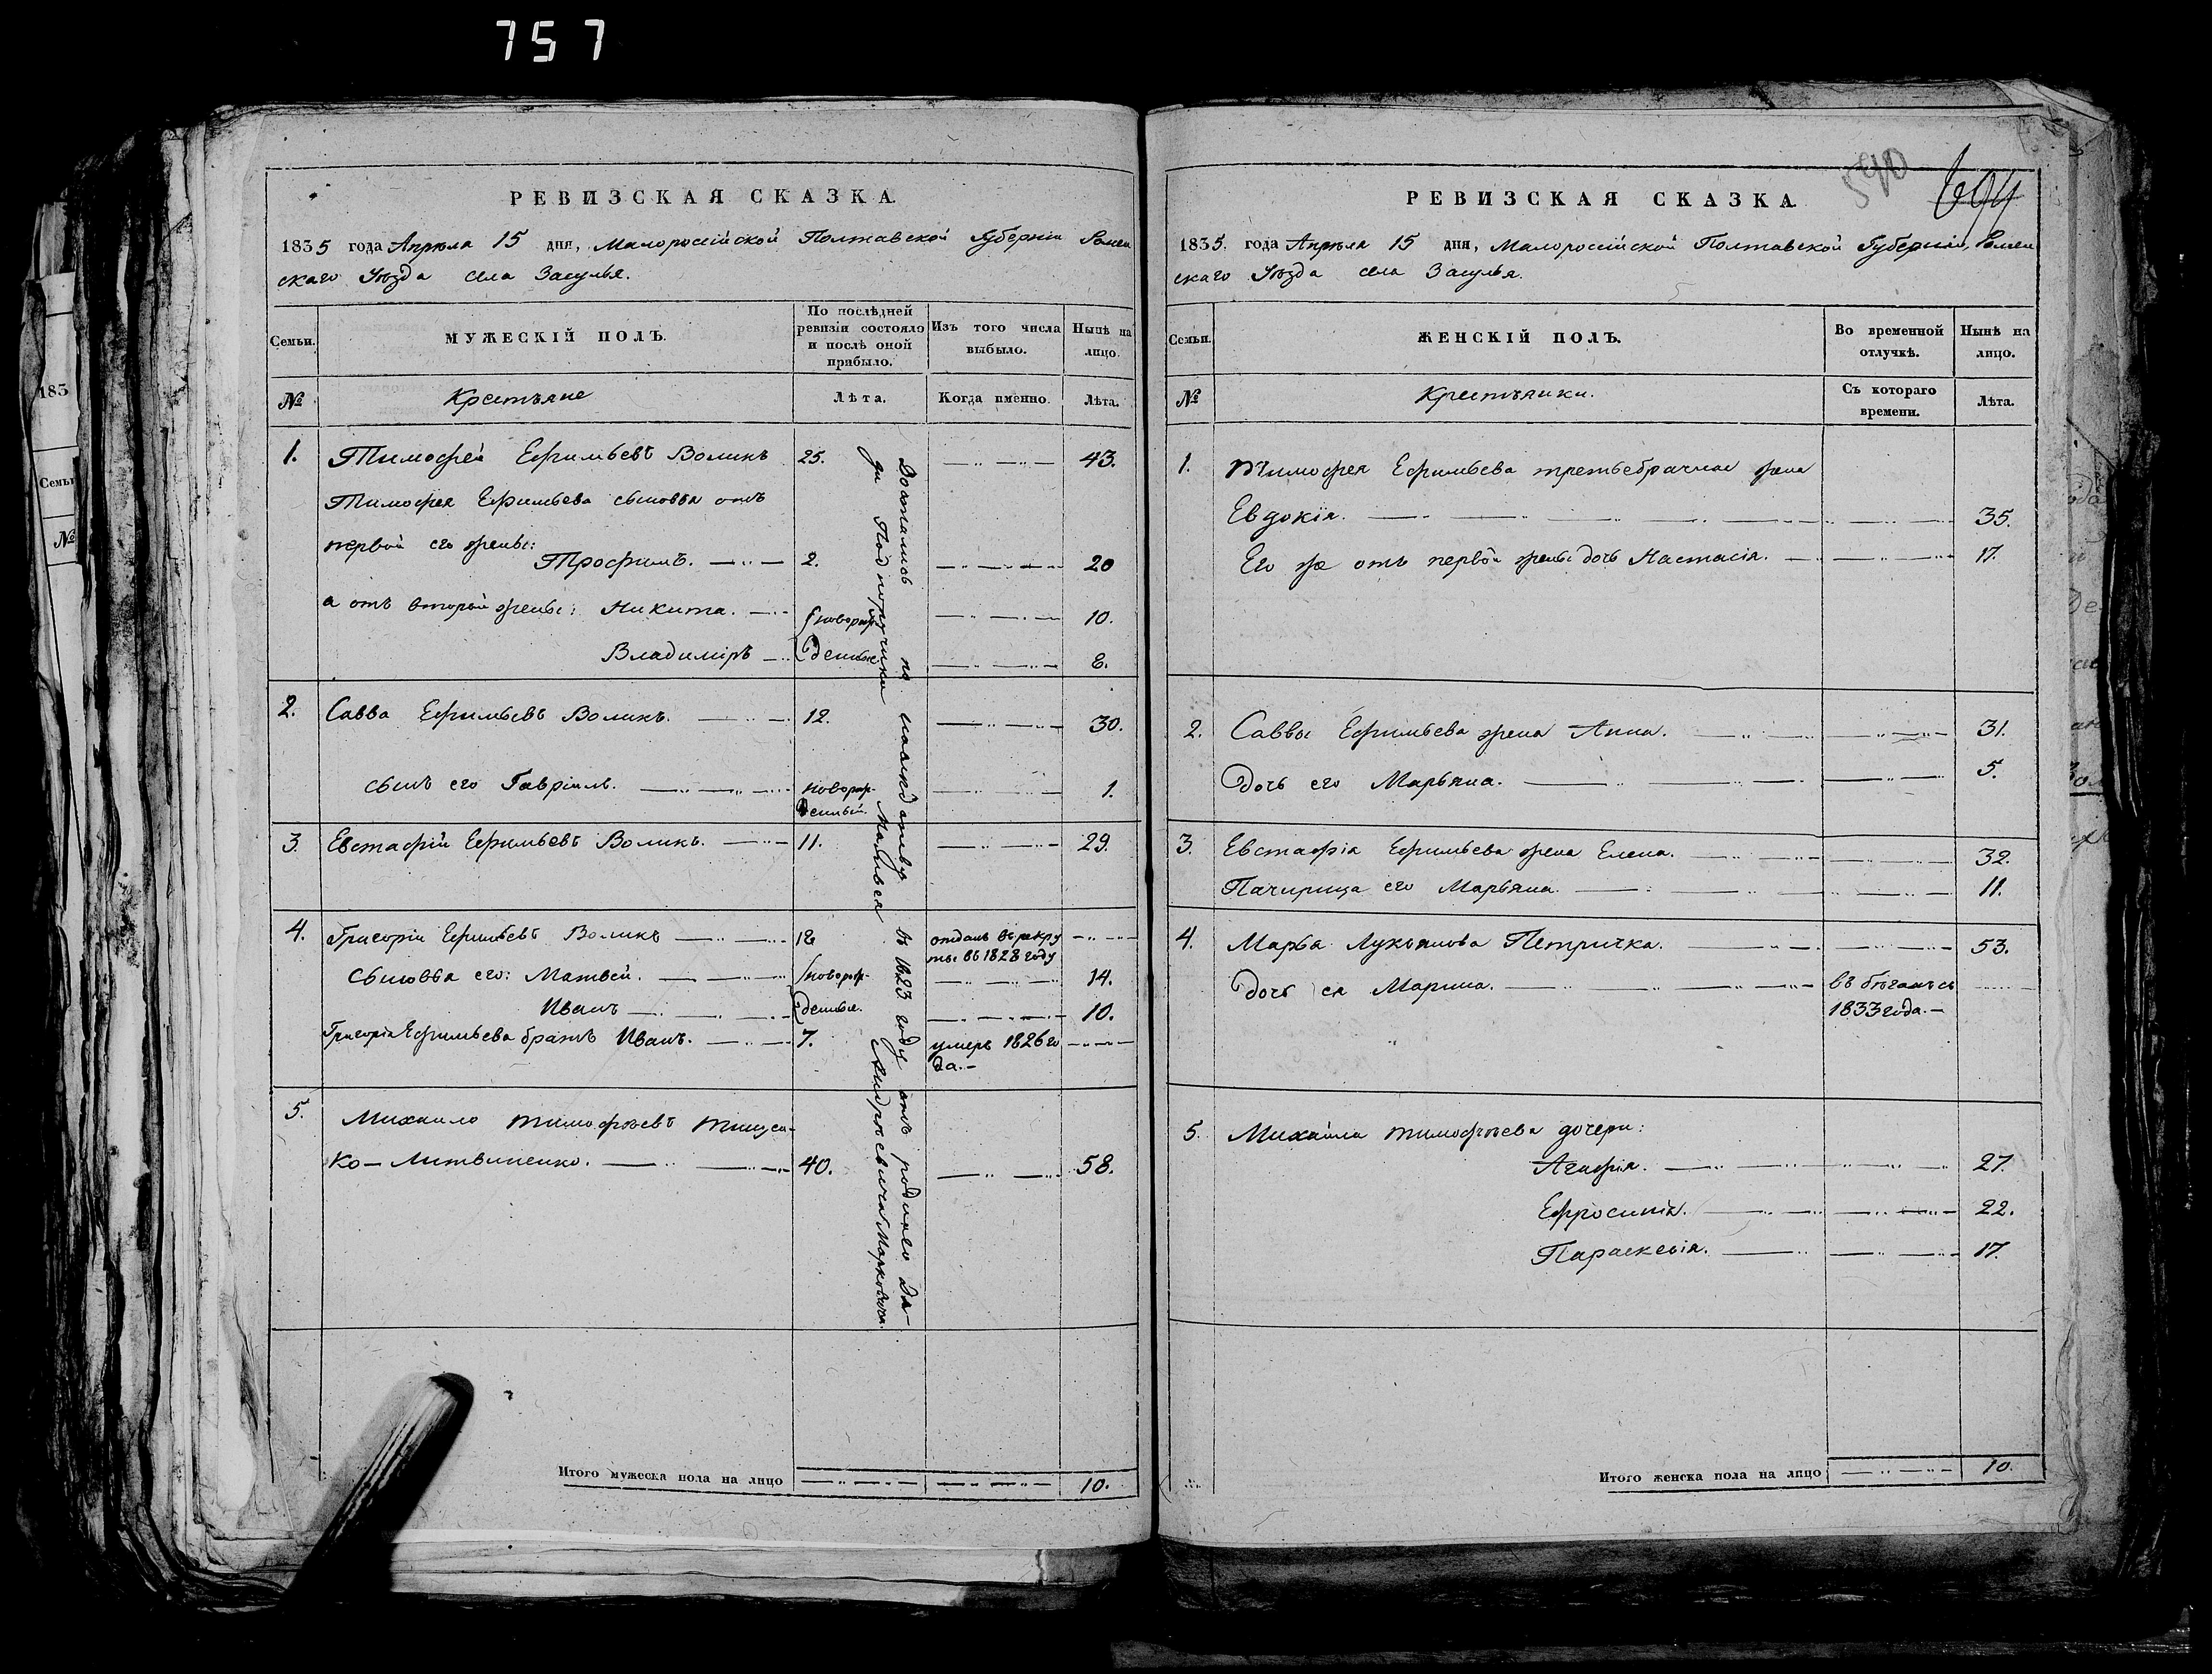 757
РЕВИЗСКАЯ СКАЗКА.
1835 года Апрѣля 15 дня, Малороссійской Полтавской Губерніи Ромен
скаго Уѣзда села Засулья.
Семьи. МУЖЕСКІЙ ПОЛЪ. По послѣдней ревизіи состояло и послѣ оной прибыло. Изъ того числа выбыло. Нынѣ на лицо.
№ Крестьяне Лѣта. Когда именно. Лѣта.
1. Тимофей Ефимьевъ Воликъ 25. 43.
Тимофея Ефимьева сыновья отъ
первой его жены:
Трофимъ. 2. 20
а отъ второй жены: Никита. новорож- 10.
Владиміръ денные 8.
2. Савва Ефимьевъ Воликъ. 12. 30.
сынъ его Гавріилъ. новорож- 1.
денный.
3. Евстафій Ефимьевъ Воликъ. 11. 29.
4. Григорій Ефимьевъ Воликъ 18 отданъ въ рекру
ты въ 1828 году
Сыновья его: Матвей. новорож- 14.
Иванъ денные. 10.
Григорія Ефимьева братъ Иванъ. 7. умеръ 1826 го
да.
5. Михаило Тимофѣевъ Тищен-
ко-Литвиненко. 40. 58.
Достались по наслѣдству въ 1823 году отъ роднаго дя-
ди Подпоручика Андреевича Марковича.
Итого мужеска пола на лицо 10.
590
694
РЕВИЗСКАЯ СКАЗКА.
1835. года Апрѣля 15 дня, Малоросійской Полтавской Губерніи, Ромен
скаго Уѣзда села Засулья.
Семьи. ЖЕНСКІЙ ПОЛЪ. Во временной отлучкѣ. Нынѣ на лицо.
№ Крестьянки. Съ котораго времени. Лѣта.
1. Тимофея Ефимьева третьебрачная жена
Евдокія. 35.
Его же отъ первой жены дочь Настасія. 17.
2. Саввы Ефимьева жена Анна. 31.
Дочь его Марьяна. 5.
3. Евстафія Ефимьева жена Елена. 32.
Пачирица его Марьяна. 11.
4. Марья Лукьянова Петричка. 53.
Дочь ея Марина. въ бѣгахъ съ
1833 года.
5. Михайла Тимофѣева дочери:
Агафія. 27.
Ефросинія. 22.
Параскевія. 17.
Итого женска пола на лицо 10.
183
Семьи
№